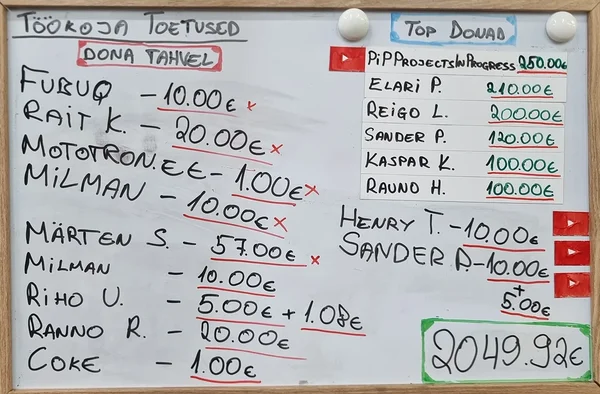 TÖÖKOJA TOETUSED
DONA TAHVEL
FUBUQ - 10.00€ x
RAIT K. - 20.00€ x
MOTOTRON.EE - 1.00€ x
MILMAN - 10.00€ x
MÄRTEN S. - 57.00€ x
MILMAN - 10.00€
RIHO U. - 5.00€ + 1.08€
RANNO R. - 20.00€
COKE - 1.00€
TOP DONAD
PIPPROJECTSINPROGRESS 250.00€
ELARI P. 210.00€
REIGO L. 200.00€
SANDER P. 120.00€
KASPAR K. 100.00€
RAUNO H. 100.00€
HENRY T. - 10.00€
SANDER P. - 10.00€
+
5.00€
2049.92€